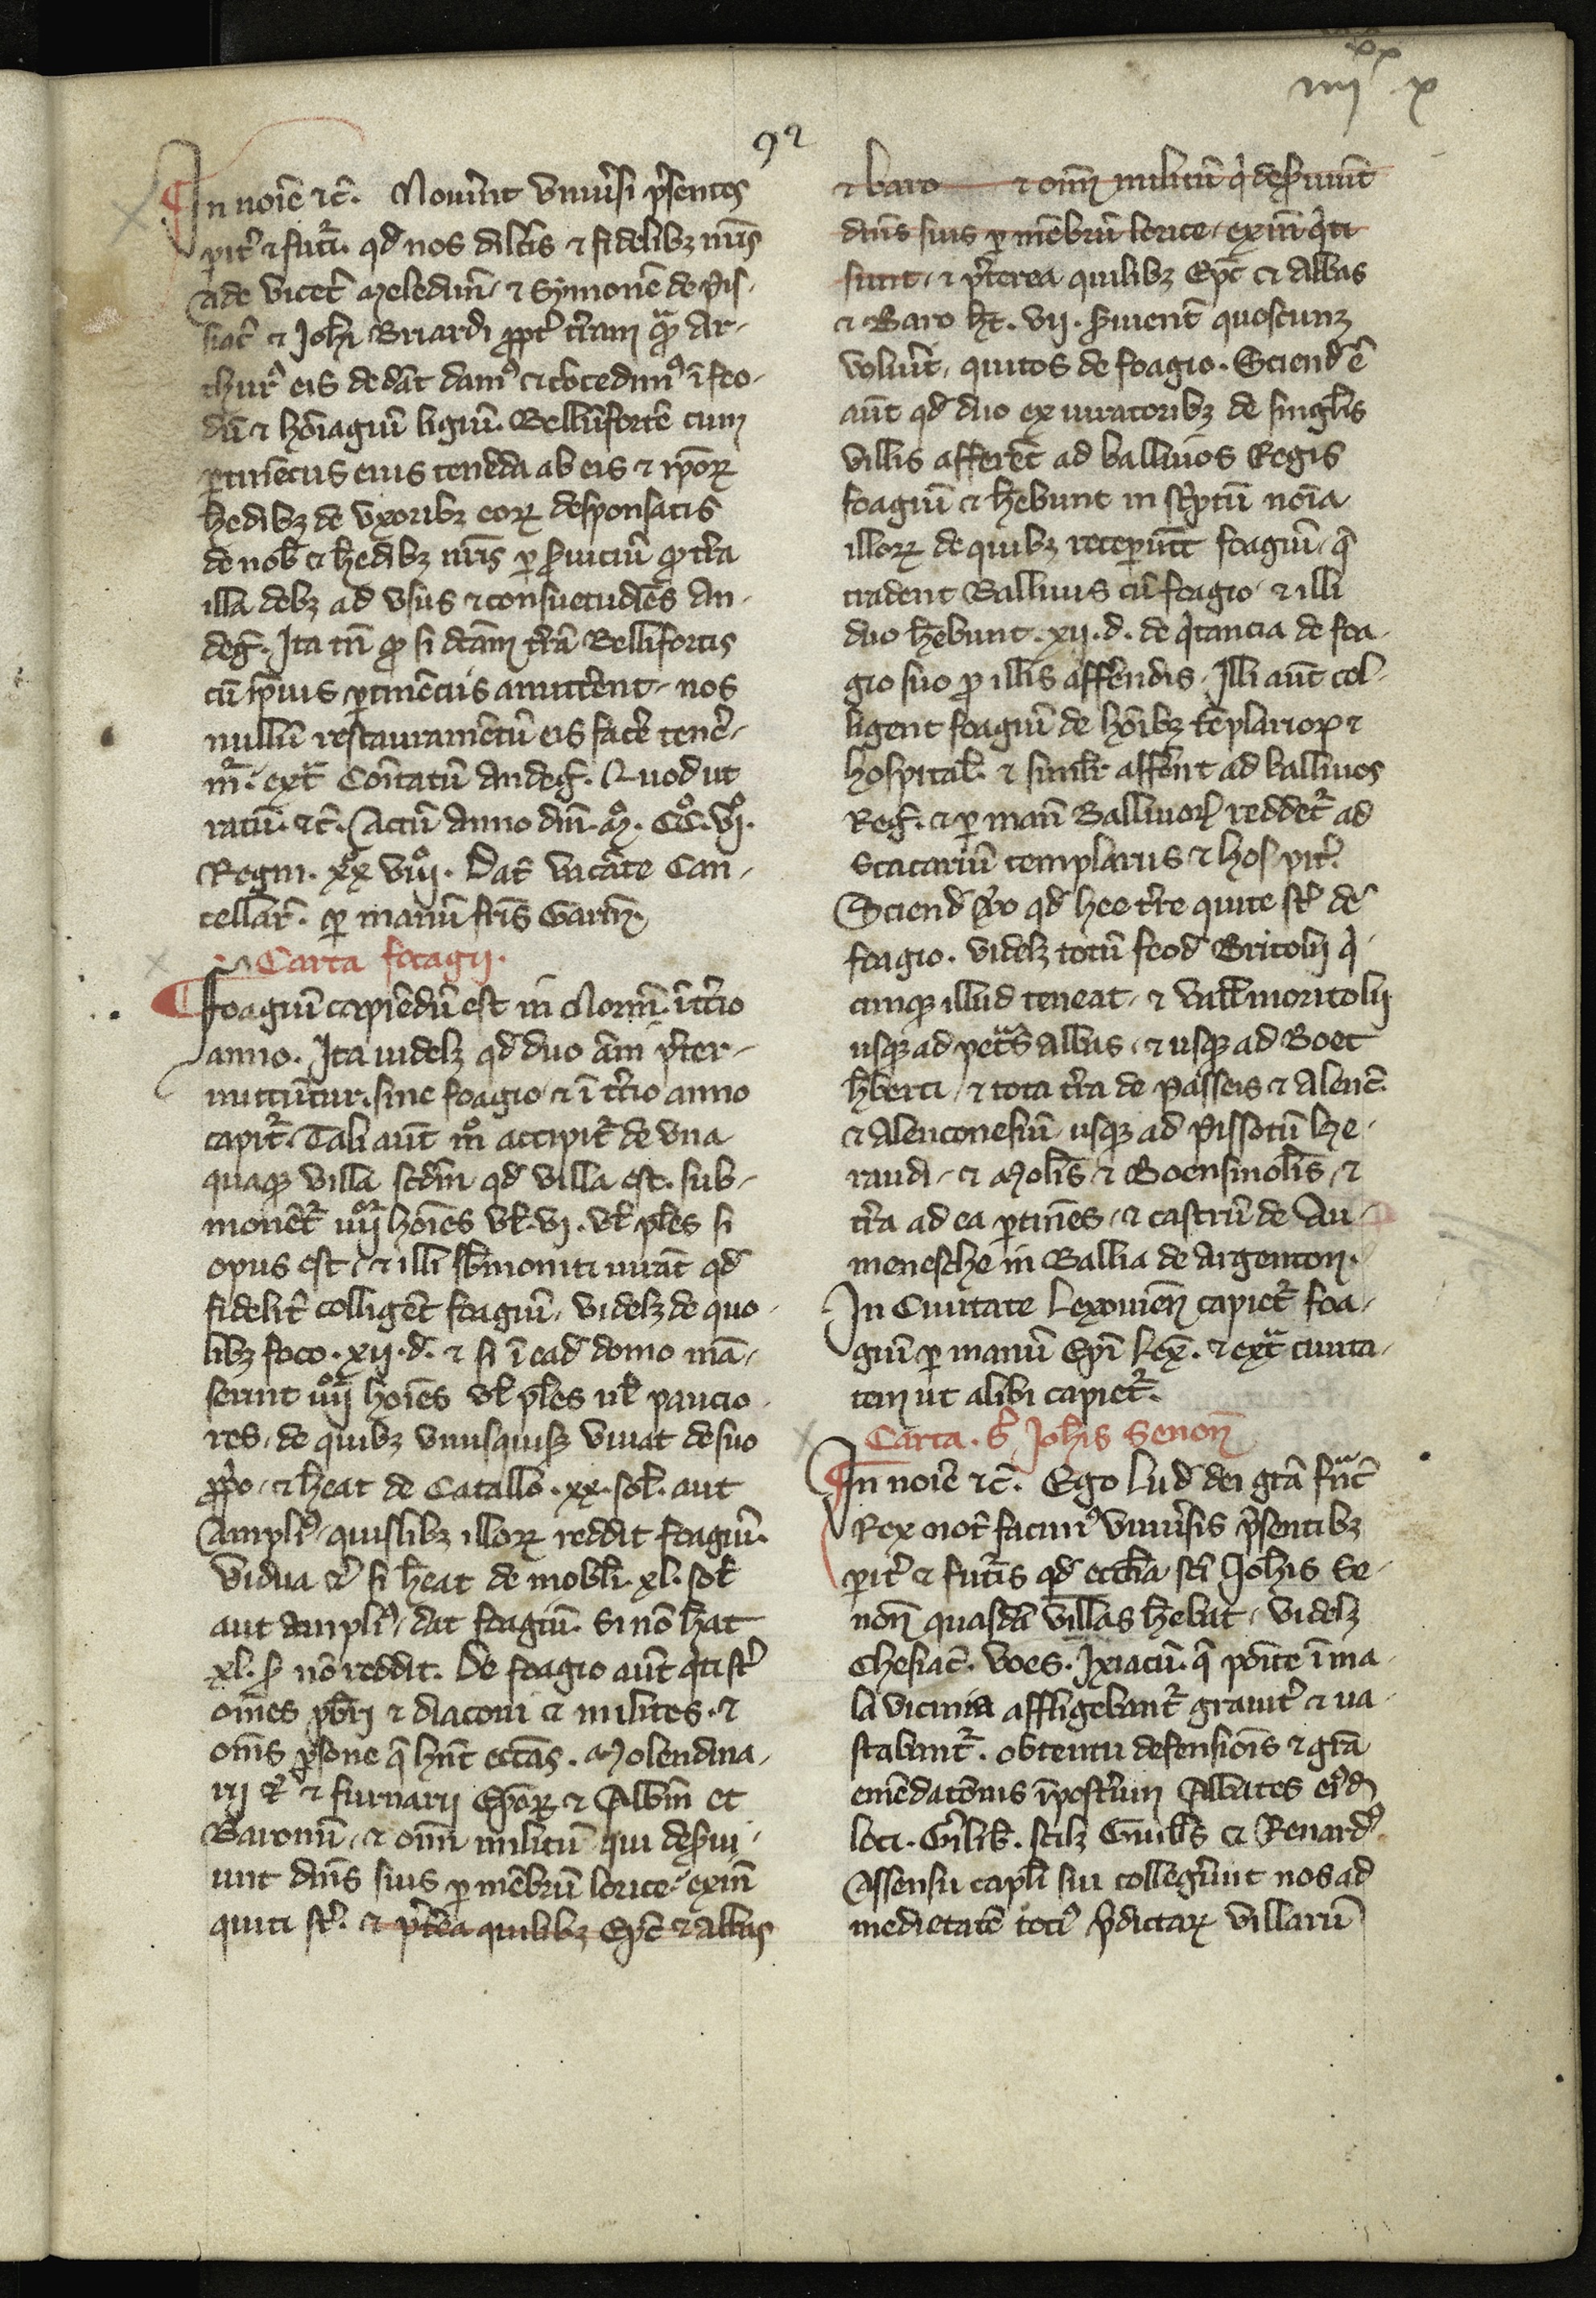 iiii xx x
92
In noĩe ⁊c̃. Nouĩnt vniũsi p̃sentes
pit̃ ⁊ fut̃i. qđ nos dilc̃is ⁊ fidelibꝫ nr̃is
Ade vicec̃ Meledun̄. ⁊ Symonē de Pis-
siac̃ ⁊ Joh̃i Briardi ꝓpt̃ t̃ram quã Ar-
thur̃ eis ded̃at dam⁹ ⁊ cõcedim⁹ ĩ feo-
dũ ⁊ hõiagiũ ligiũ. Bellũfortẽ cum
ꝑtinẽciis eius tenẽda ab eis ⁊ ip̃oꝝ
hedibꝫ de vxoribꝫ eoꝝ desponsatis
de nob̃ ⁊ hedibꝫ nr̃is ꝑ s̃uiciũ qđ t̃ra
illa debꝫ ad vsus ⁊ consuetudĩes An-
deg̃. Ita tñ qđ si dc̃am t̃rã Bellifortis
cũ ip̃ius ꝑtinẽciis amitt̃ent. nos
nullũ restauramẽtũ eis fac̃e tenẽ-
m̃. ext̃ Comitatũ Andeg̃. Quod ut
ratũ. ⁊c̃. Actũ anno dñi. M̊. CC̊. vĩ.
Regni. xx viii̊. Dat̃ vacãte Can-
cellar̃. ꝑ manũ fr̃is Garin̄.
Carta focagii.
Foagiũ capiẽdũ est in Norm̃. ĩ t̃cio
anno. Ita uidelꝫ qđ duo ãni p̃ter-
mittũtur. sine foagio ⁊ ĩ t̃cio anno
capit̃. Tali aũt m̊ accipit̃ de vna
quaqꝫ villa scđm qđ villa est. sub-
monẽt̃ iiiĩ hoĩes vł. vi. vł pl̃es si
opus est. ⁊ illi sb̃moniti iurãt qđ
fidelit̃ colligẽt foagiũ. videlꝫ de quo-
libꝫ foco. xii. đ. ⁊ si ĩ eađ domo mã-
serint iiiĩ hoĩes vł pl̃es uł paucio-
res. de quibꝫ vnusquisqꝫ viuat de suo
ꝓp̃o. ⁊ h̃eat de Catallo. xx. sol̃. aut
Ampli⁹. quislibꝫ illoꝝ reddit foagiũ.
vidua ⁊̃ si h̃eat de mobl̃i. xl. sol̃
aut ampli⁹. dat foagiũ. Si nõ h̃eat
xl. s̃ nõ reddit. De foagio aũt q̃ti st̃
om̃es pb̃ri ⁊ diaconi ⁊ milites. ⁊
om̃s ꝑsone q̃ hñt ecc̃as. Molendina-
rii ⁊̃ ⁊ furnarii Ep̃oꝝ ⁊ Abb̃m et
Baronũ. ⁊ oim̃ militũ qui des̃ui-
unt dñis suis ꝑ mẽbrũ lorice. exiñ
quiti st̃. ⁊ p̃t̃ea quilibꝫ Ep̃c ⁊ abbas
⁊ baro ⁊ oim̃ militũ q̃ des̃uiunt
dñis suis ꝑ mẽbrũ lorice. exiñ q̃ti
sunt. ⁊ p̃terea quilibꝫ Ep̃c ⁊ Abbas
⁊ Baro h̃t. vii. s̃uient̃ quoscunqꝫ
voluĩt. quitos de foagio. Sciend̃ ẽ
aũt qđ duo ex iuratoribꝫ de singl̃is
villis affer̃et ad balliuos Regis
foagiũ ⁊ h̃ebunt in sc̃ptũ noĩa
illoꝝ de quibꝫ recepũt foagiũ. q̃
tradent Balliuis cũ foagio. ⁊ illi
duo h̃ebunt. xii. đ. de q̃tancia de foa-
gio suo ꝑ illis affẽndis. Illi aũt col-
ligent foagiũ de hõibꝫ tẽplarioꝝ ⁊
hospital̃. ⁊ simil̃r affẽnt ad balliuos
Reg̃. ⁊ ꝑ man̄ Balliuoꝝ reddet̃ ad
Scacariũ templariis ⁊ hospit̃.
Sciend̃ v̊o qđ hee t̃re quite st̃ de
foagio. videlꝫ totũ feod̃ Britolii q̃-
cunqꝫ illud teneat. ⁊ vall̃ moritolii
usqꝫ ad pet̃s albas. ⁊ usqꝫ ad Boet
hb̃erti. ⁊ tota t̃ra de passeis ⁊ Alenc̃.
⁊ Alenconesiũ usqꝫ ad pissotũ he-
raudi. ⁊ Molĩs ⁊ Boensmolĩs. ⁊
t̃ra ad ea ꝑtinẽs. ⁊ castrũ de Au-
menesche in Ballia de Argenton.
In Ciuitate Lexouieñ capiet̃ foa-
giũ ꝑ manũ Ep̃i Lex̃. ⁊ ext̃ ciuita-
tem ut alibi capiet̃.
Carta. S̃ Joh̃is Senon̄
In noĩe ⁊c̃. Ego Lud̃ dei gr̃a fr̃nc̃
Rex not̃ facim⁹ vniũsis p̃sentibꝫ
pit̃ ⁊ fut̃is qđ eccl̃ia sc̃i Joh̃is Se-
non̄ quasdã villas h̃ebat. videlꝫ
Chesiac̃. voes. Ixiacũ. q̃ posite ĩ ma-
la vicinia affligebant̃ grauit̃ ⁊ ua-
stabant̃. obtentu defensiõis ⁊ gr̃a
emẽdatõnis ĩpost̃um Abbates eiđ
loci. Gĩlib̃. scilꝫ Guill̃s ⁊ Renard⁹
Assensu capl̃i sui collegĩunt nos ad
medietatẽ toci⁹ p̃dictaꝝ villarũ